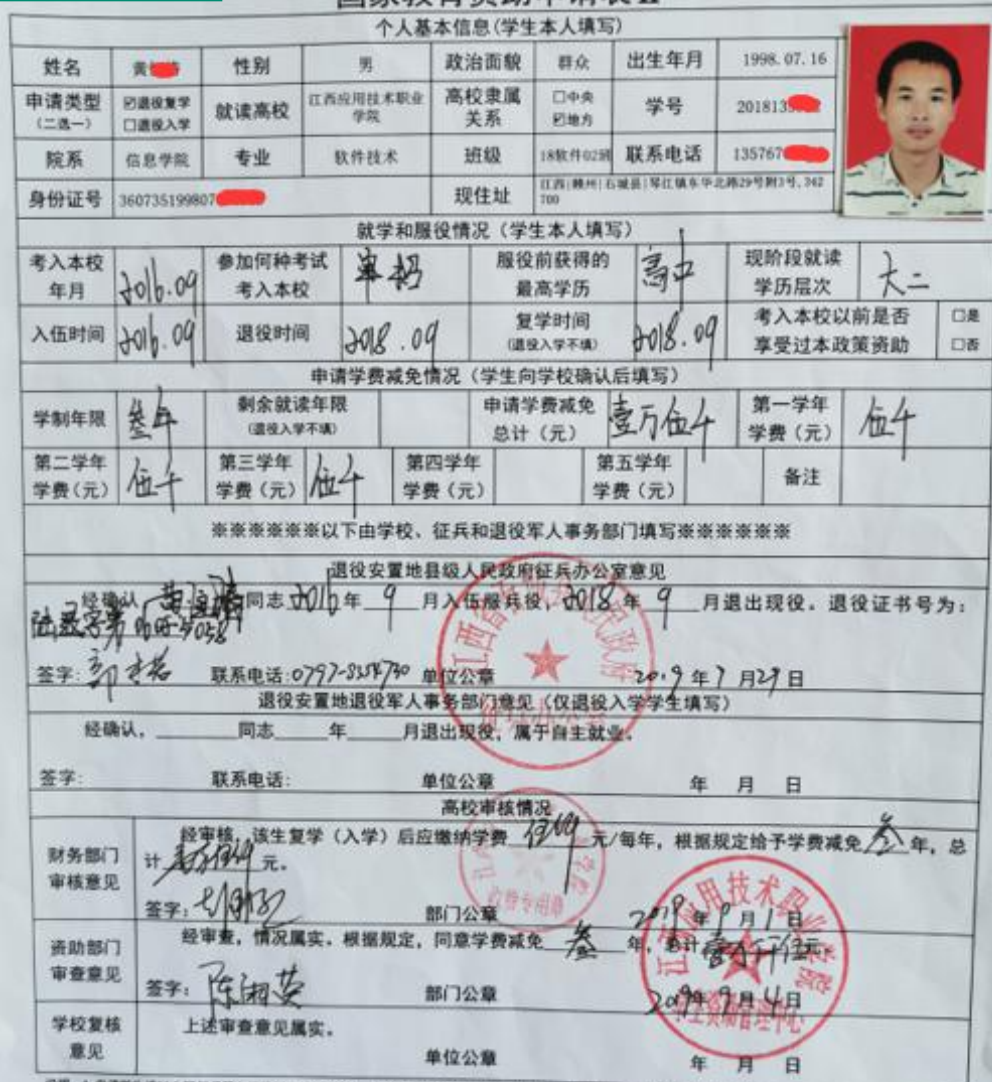 个人基本信息(学生本人填写)
姓名 黄 性别 男 政治面貌 群众 出生年月 1998.07.16
申请类型 (二选一) ☑退役复学 □退役入学 就读高校 江西应用技术职业学院 高校隶属关系 □中央 ☑地方 学号 201813
院系 信息学院 专业 软件技术 班级 18软件02班 联系电话 13576?
身份证号 360735199807 现住址 江西|赣州|石城县|琴江镇东华北路29号附3号,342700
就学和服役情况（学生本人填写）
考入本校年月 2016.09 参加何种考试考入本校 单招 服役前获得的最高学历 高中 现阶段就读学历层次 大二
入伍时间 2016.09 退役时间 2018.09 复学时间 (退役入学不填) 2018.09 考入本校以前是否享受过本政策资助 □是 □否
申请学费减免情况（学生向学校确认后填写）
学制年限 叁年 剩余就读年限 (退役入学不填) 申请学费减免总计（元） 壹万伍仟 第一学年学费（元） 伍仟
第二学年学费(元) 伍千 第三学年学费(元) 伍千 第四学年学费(元) 第五学年学费(元) 备注
※※※※※※以下由学校、征兵和退役军人事务部门填写※※※※※※
退役安置地县级人民政府征兵办公室意见
经确认 同志 2016 年 9 月入伍服兵役，2018 年 9 月退出现役。退役证书号为：
签字: 联系电话:0797- 单位公章 2019 年 7 月 29 日
退役安置地退役军人事务部门意见（仅退役入学学生填写）
经确认， 同志 年 月退出现役，属于自主就业。
签字: 联系电话: 单位公章 年 月 日
高校审核情况
财务部门审核意见 经审核，该生复学（入学）后应缴纳学费 伍仟 元/每年，根据规定给予学费减免 叁 年，总
计 元。
签字: 部门公章 2019 年 9 月 1 日
资助部门审查意见 经审查，情况属实。根据规定，同意学费减免 叁 年，总计 元。
签字: 陈湘英 部门公章 2019年 9 月 4 日
学校复核意见 上述审查意见属实。
单位公章 年 月 日